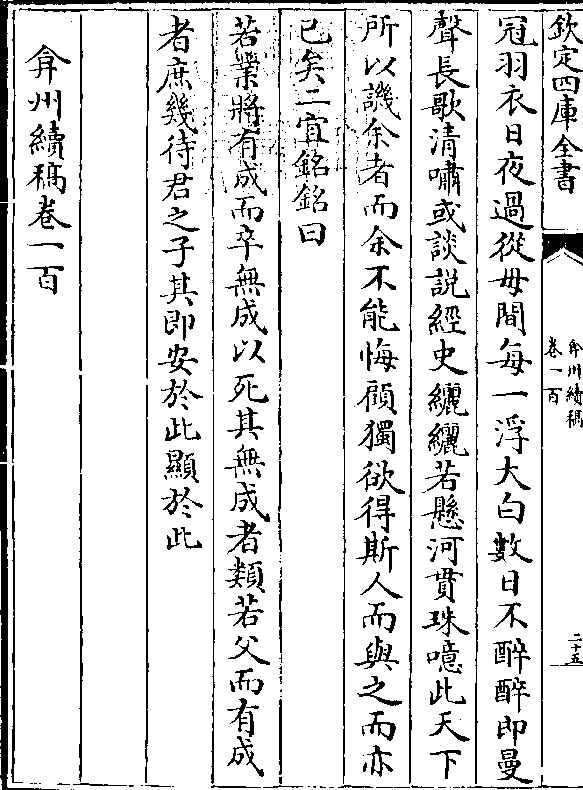 欽定四庫全書
弇州續稿
卷一百
二十五
冠羽衣日夜過從毋間每一浮大白數日不醉醉即曼
聲長歌清嘯或談説經史纚纚若懸河貫珠噫此天下
所以譏余者而余不能悔顧獨欲得斯人而與之而亦
已矣二宜銘銘曰
若業將有成而卒無成以死其無成者類若父而有成
者庶幾待君之子其即安於此顯於此
弇州續稿卷一百